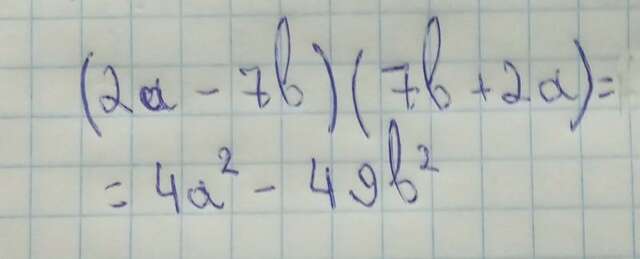 (2a - 7b)(7b + 2a) =
= 4a² - 49b²